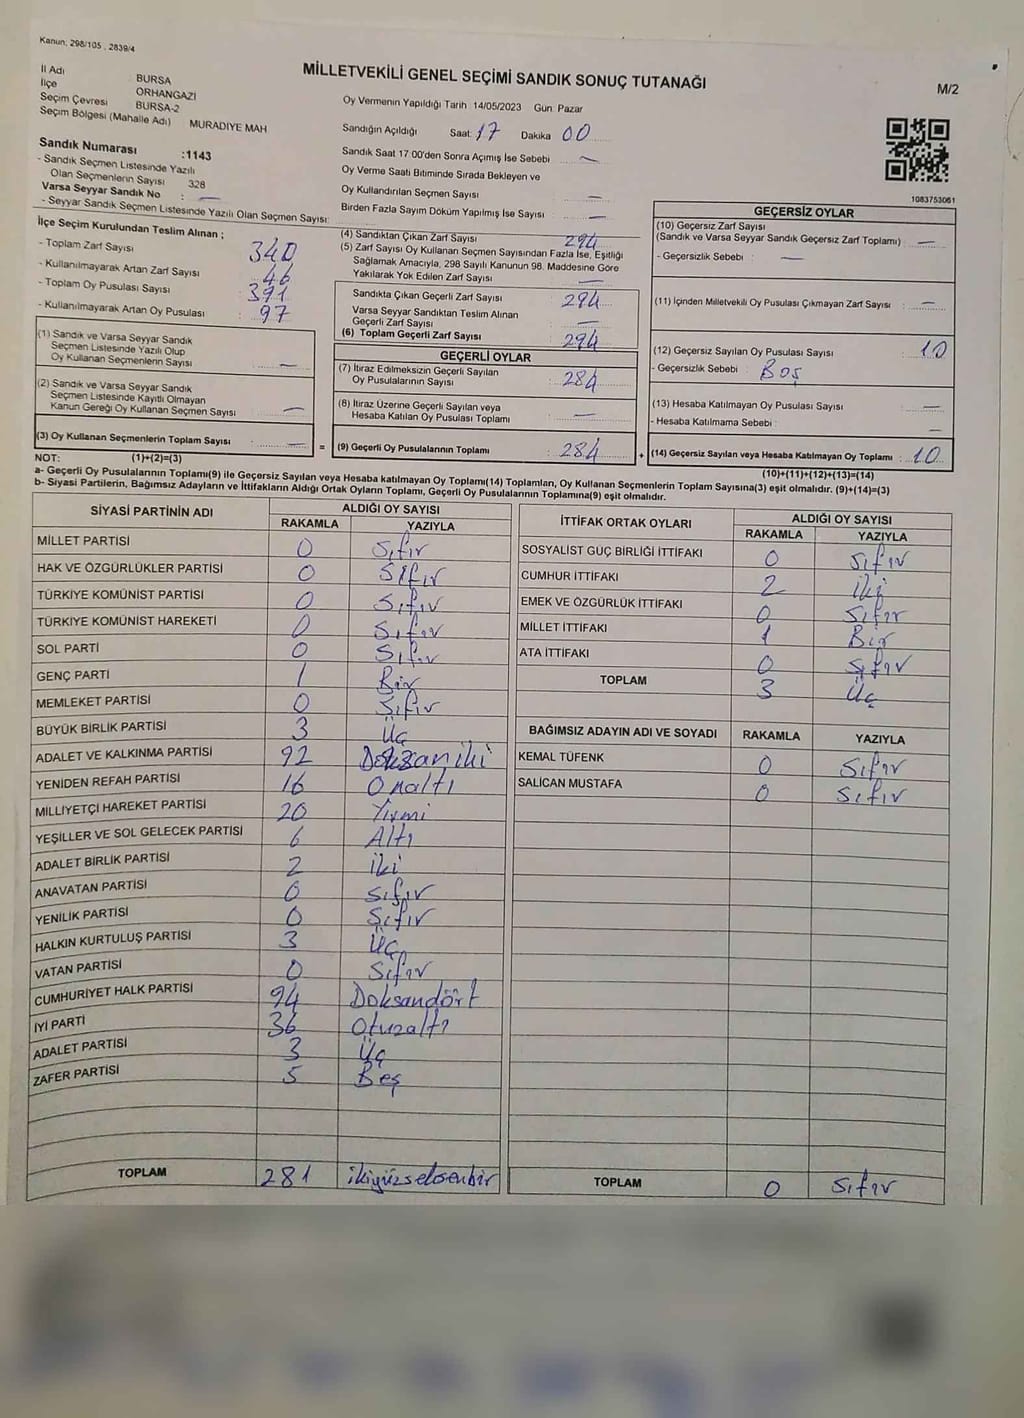 Kanun; 298/105 , 2839/4
MİLLETVEKİLİ GENEL SEÇİMİ SANDIK SONUÇ TUTANAĞI
M/2
İl Adı : BURSA
İlçe : ORHANGAZİ
Seçim Çevresi : BURSA-2
Seçim Bölgesi (Mahalle Adı) : MURADİYE MAH
Oy Vermenin Yapıldığı Tarih 14/05/2023 Gün: Pazar
Sandığın Açıldığı Saat: 17 Dakika 00
Sandık Saat 17 00'den Sonra Açımış İse Sebebi —
Oy Verme Saati Bitiminde Sırada Bekleyen ve
Oy Kullandırılan Seçmen Sayısı —
Birden Fazla Sayım Döküm Yapılmış İse Sayısı —
Sandık Numarası :1143
- Sandık Seçmen Listesinde Yazılı
Olan Seçmenlerin Sayısı 328
Varsa Seyyar Sandık No : —
- Seyyar Sandık Seçmen Listesinde Yazılı Olan Seçmen Sayısı:
1083753061
İlçe Seçim Kurulundan Teslim Alınan ;
- Toplam Zarf Sayısı : 340
- Kullanılmayarak Artan Zarf Sayısı : 46
- Toplam Oy Pusulası Sayısı : 391
- Kullanılmayarak Artan Oy Pusulası : 97
(1) Sandık ve Varsa Seyyar Sandık
Seçmen Listesinde Yazılı Olup
Oy Kullanan Seçmenlerin Sayısı —
(2) Sandık ve Varsa Seyyar Sandık
Seçmen Listesinde Kayıtlı Olmayan
Kanun Gereği Oy Kullanan Seçmen Sayısı —
(3) Oy Kullanan Seçmenlerin Toplam Sayısı — =
(4) Sandıktan Çıkan Zarf Sayısı 294
(5) Zarf Sayısı Oy Kullanan Seçmen Sayısından Fazla İse, Eşitliği
Sağlamak Amacıyla, 298 Sayılı Kanunun 98. Maddesine Göre
Yakılarak Yok Edilen Zarf Sayısı —
Sandıkta Çıkan Geçerli Zarf Sayısı 294
Varsa Seyyar Sandıktan Teslim Alınan
Geçerli Zarf Sayısı —
(6) Toplam Geçerli Zarf Sayısı 294
GEÇERLİ OYLAR
(7) İtiraz Edilmeksizin Geçerli Sayılan
Oy Pusulalarının Sayısı 284
(8) İtiraz Üzerine Geçerli Sayılan veya
Hesaba Katılan Oy Pusulası Toplamı —
(9) Geçerli Oy Pusulalarının Toplamı 284 +
GEÇERSİZ OYLAR
(10) Geçersiz Zarf Sayısı
(Sandık ve Varsa Seyyar Sandık Geçersiz Zarf Toplamı) : —
- Geçersizlik Sebebi : —
(11) İçinden Milletvekili Oy Pusulası Çıkmayan Zarf Sayısı : —
(12) Geçersiz Sayılan Oy Pusulası Sayısı : 10
- Geçersizlik Sebebi : Boş
(13) Hesaba Katılmayan Oy Pusulası Sayısı : —
- Hesaba Katılmama Sebebi : —
(14) Geçersiz Sayılan veya Hesaba Katılmayan Oy Toplamı : 10
NOT: (1)+(2)=(3)
(10)+(11)+(12)+(13)=(14)
a- Geçerli Oy Pusulalarının Toplamı(9) ile Geçersiz Sayılan veya Hesaba katılmayan Oy Toplamı(14) Toplamları, Oy Kullanan Seçmenlerin Toplam Sayısına(3) eşit olmalıdır. (9)+(14)=(3)
b- Siyasi Partilerin, Bağımsız Adayların ve İttifakların Aldığı Ortak Oyların Toplamı, Geçerli Oy Pusulalarının Toplamına(9) eşit olmalıdır.
SİYASİ PARTİNİN ADI ALDIĞI OY SAYISI
RAKAMLA YAZIYLA
MİLLET PARTİSİ 0 Sıfır
HAK VE ÖZGÜRLÜKLER PARTİSİ 0 Sıfır
TÜRKİYE KOMÜNİST PARTİSİ 0 Sıfır
TÜRKİYE KOMÜNİST HAREKETİ 0 Sıfır
SOL PARTİ 0 Sıfır
GENÇ PARTİ 1 Bir
MEMLEKET PARTİSİ 0 Sıfır
BÜYÜK BİRLİK PARTİSİ 3 Üç
ADALET VE KALKINMA PARTİSİ 92 Doksaniki
YENİDEN REFAH PARTİSİ 16 Onaltı
MİLLİYETÇİ HAREKET PARTİSİ 20 Yirmi
YEŞİLLER VE SOL GELECEK PARTİSİ 6 Altı
ADALET BİRLİK PARTİSİ 2 İki
ANAVATAN PARTİSİ 0 Sıfır
YENİLİK PARTİSİ 0 Sıfır
HALKIN KURTULUŞ PARTİSİ 3 Üç
VATAN PARTİSİ 0 Sıfır
CUMHURİYET HALK PARTİSİ 94 Doksandört
İYİ PARTİ 36 Otuzaltı
ADALET PARTİSİ 3 Üç
ZAFER PARTİSİ 5 Beş
TOPLAM 281 ikiyüzseksenbir
İTTİFAK ORTAK OYLARI ALDIĞI OY SAYISI
RAKAMLA YAZIYLA
SOSYALİST GÜÇ BİRLİĞİ İTTİFAKI 0 Sıfır
CUMHUR İTTİFAKI 2 İki
EMEK VE ÖZGÜRLÜK İTTİFAKI 0 Sıfır
MİLLET İTTİFAKI 1 Bir
ATA İTTİFAKI 0 Sıfır
TOPLAM 3 Üç
BAĞIMSIZ ADAYIN ADI VE SOYADI RAKAMLA YAZIYLA
KEMAL TÜFENK 0 Sıfır
SALİCAN MUSTAFA 0 Sıfır
TOPLAM 0 Sıfır